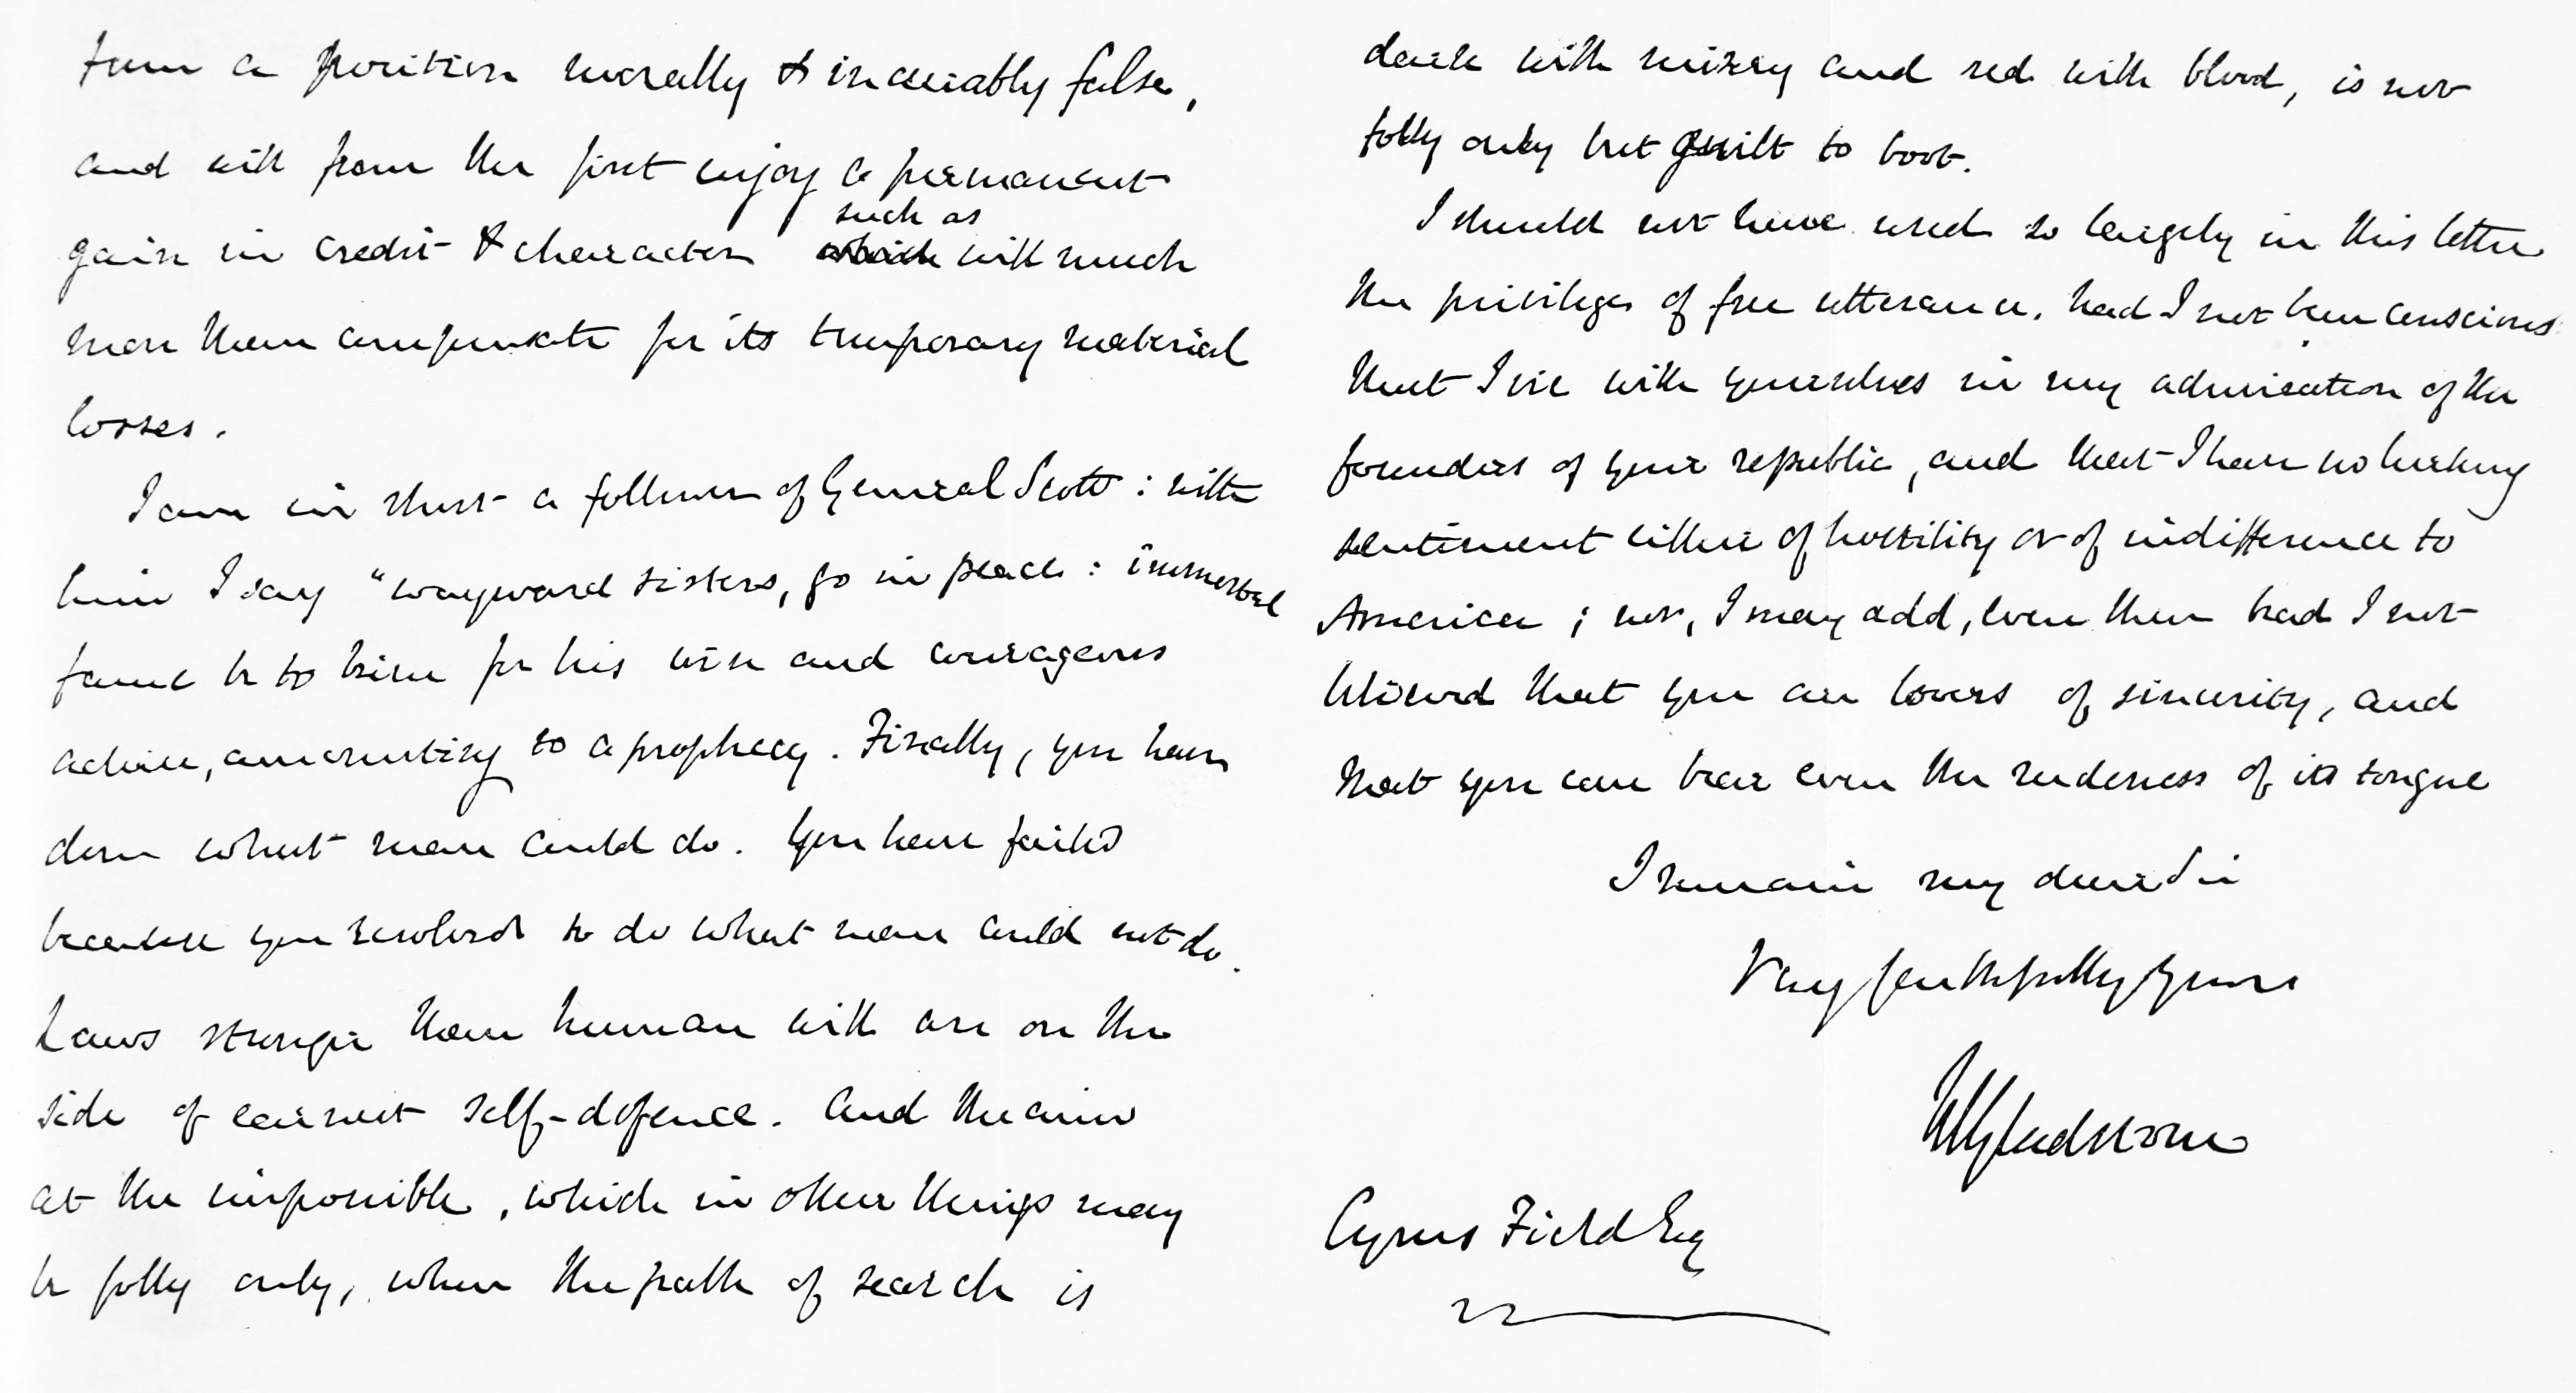 from a position morally & incurably false,
and will from the first enjoy a permanent
gain in credit & character such as will much
more than compensate for its temporary material
losses.
I am in short a follower of General Scott : with
him I say "wayward sisters, go in peace : immortal
fame be to him for his wise and courageous
advice, amounting to a prophecy. Finally, you have
done what men could do. You have failed
because you resolved to do what men could not do.
Laws stronger than human will are on the
side of earnest self-defence. And the aim
at the impossible, which in other things may
be folly only, when the path of search is
dark with misery and red with blood, is not
folly only but guilt to boot.
I should not have used so largely in this letter
the privileges of free utterance, had I not been conscious
that I vie with yourselves in my admiration of the
founders of your republic, and that I have no lurking
sentiment either of hostility or of indifference to
America ; nor, I may add, even then had I not
believed that you are lovers of sincerity, and
that you can bear even the rudeness of its tongue
I remain my dear Sir
Very faithfully yours
WGladstone
Cyrus Field Esq